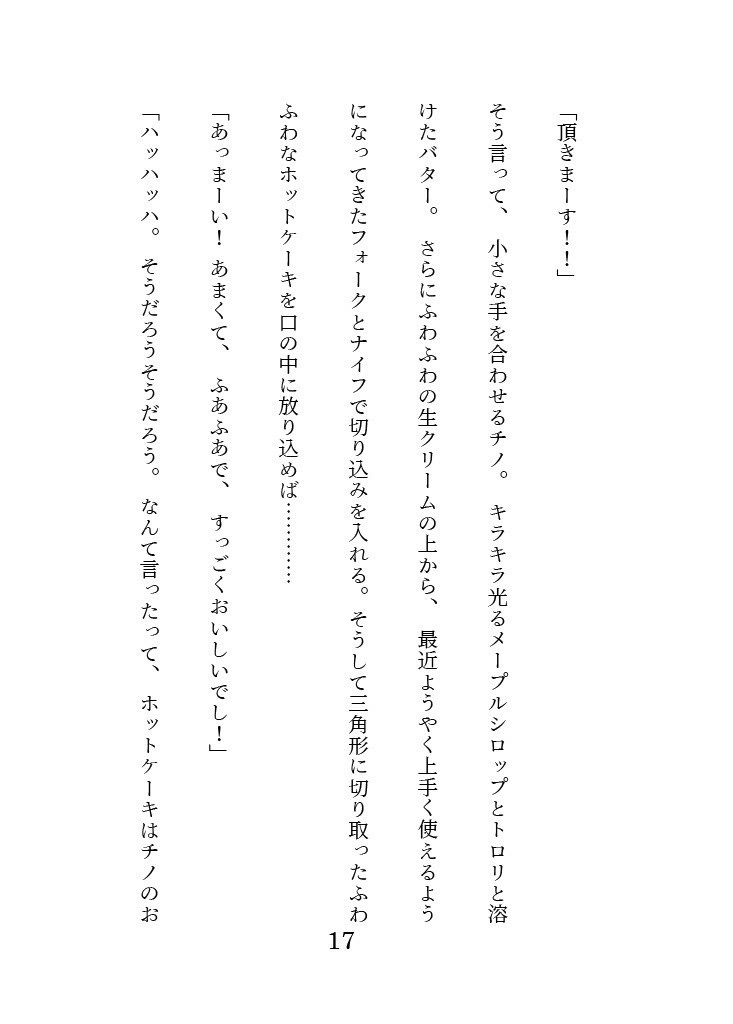 「頂きまーす！！」
そう言って、小さな手を合わせるチノ。キラキラ光るメープルシロップとトロリと溶
けたバター。さらにふわふわの生クリームの上から、最近ようやく上手く使えるよう
になってきたフォークとナイフで切り込みを入れる。そうして三角形に切り取ったふわ
ふわなホットケーキを口の中に放り込めば…………
「あっまーい！あまくて、ふあふあで、すっごくおいしいでし！」
「ハッハッハ。そうだろうそうだろう。なんて言ったって、ホットケーキはチノのお
17